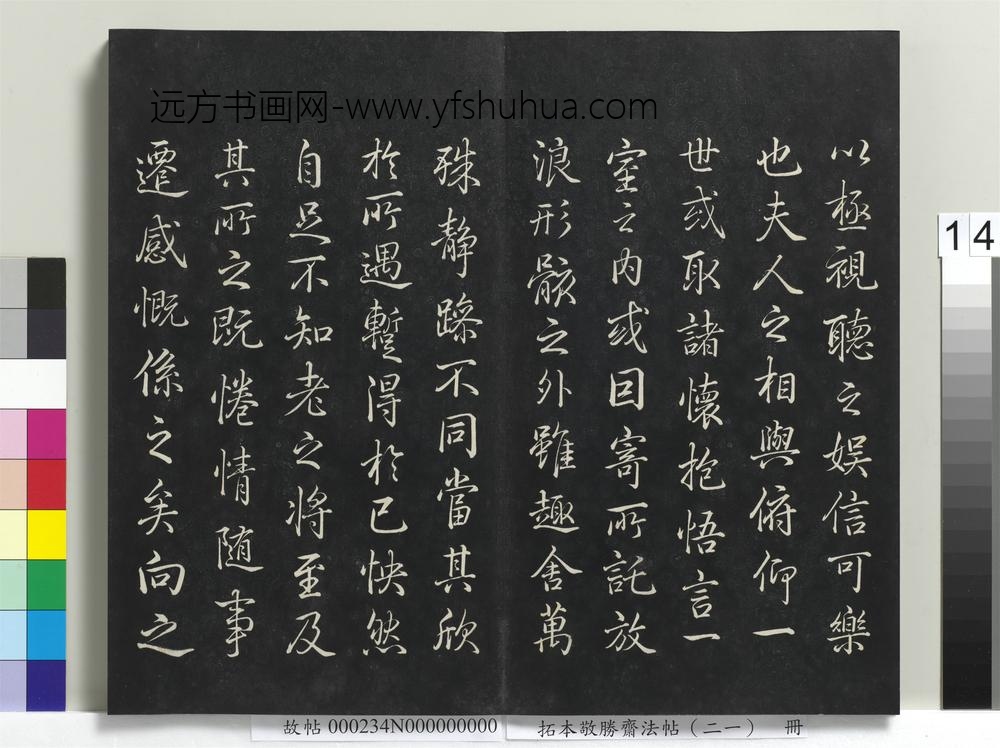 远方书画网-www.yfshuhua.com
以極視聽之娱信可樂
也夫人之相與俯仰一
世或取諸懷抱悟言一
室之内或因寄所託放
浪形骸之外雖趣舍萬
殊静躁不同當其欣
於所遇蹔得於己怏然
自足不知老之將至及
其所之既惓情随事
遷感慨係之矣向之
14
故帖 000234N000000000
拓本敬勝齋法帖(二一) 冊